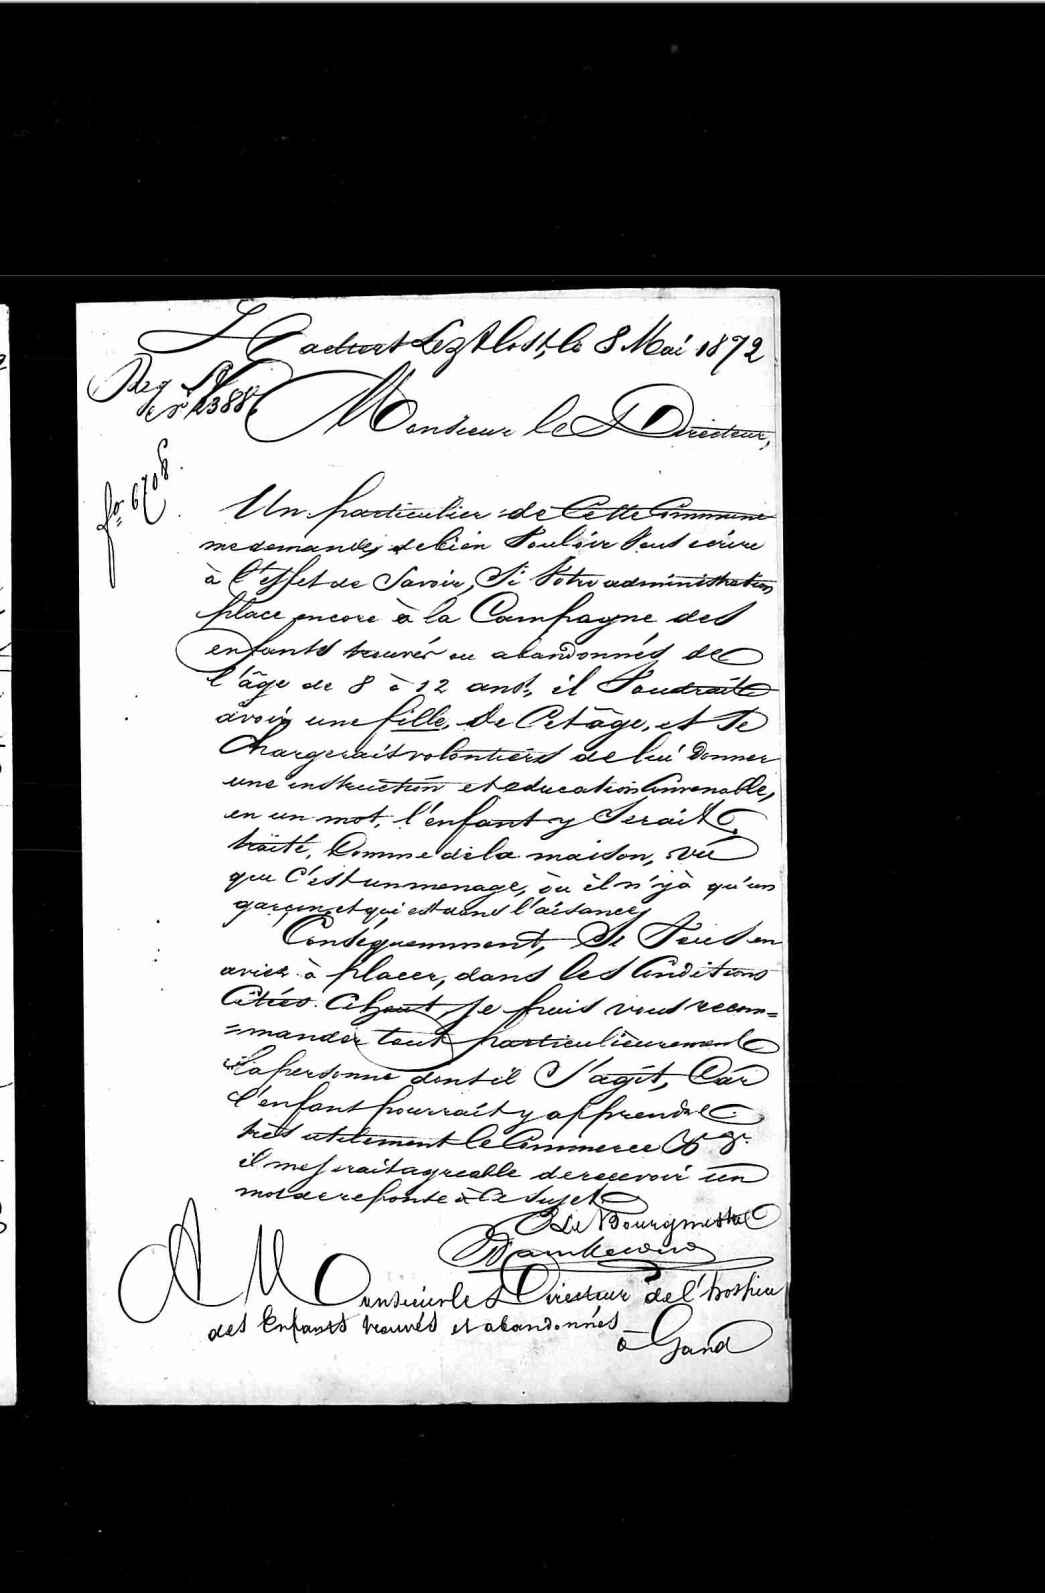 Haeltert Lez Alost, le 8 Mai 1872
Reg
n° 2388
f° 6708.
Monsieur le Directeur,
Un particulier de cette Commune
me demande, de bien Vouloir Vous écrire
à l'effet de Savoir, Si Votre administration
place encore à la Campagne des
enfants trouvés ou abandonnés de
l'âge de 8 à 12 ans, il Voudrait
avoir une fille, de Cet âge, et Se
Chargerait volontiers de lui donner
une instruction et education Convenable,
en un mot, l'enfant y Serait
traité, Comme de la maison, vu
que C'est un menage, où il n'y à qu'un
garçon, et qui est dans l'aisance,
Conséquemment, Si Vous en
aviez à placer, dans les Conditions
Citées Cihaut, Je puis vous recom=
=mander tout particulieurement
la personne dont il S'agit, Car
l'enfant pourrait y apprendre
très utilement le Commerce
il me serait agreable de recevoir un
mot de reponse à ce Sujet
Le Bourgmestre
A Monsieur le Directeur de l'hospice
des Enfants trouvés et abandonnés
à Gand